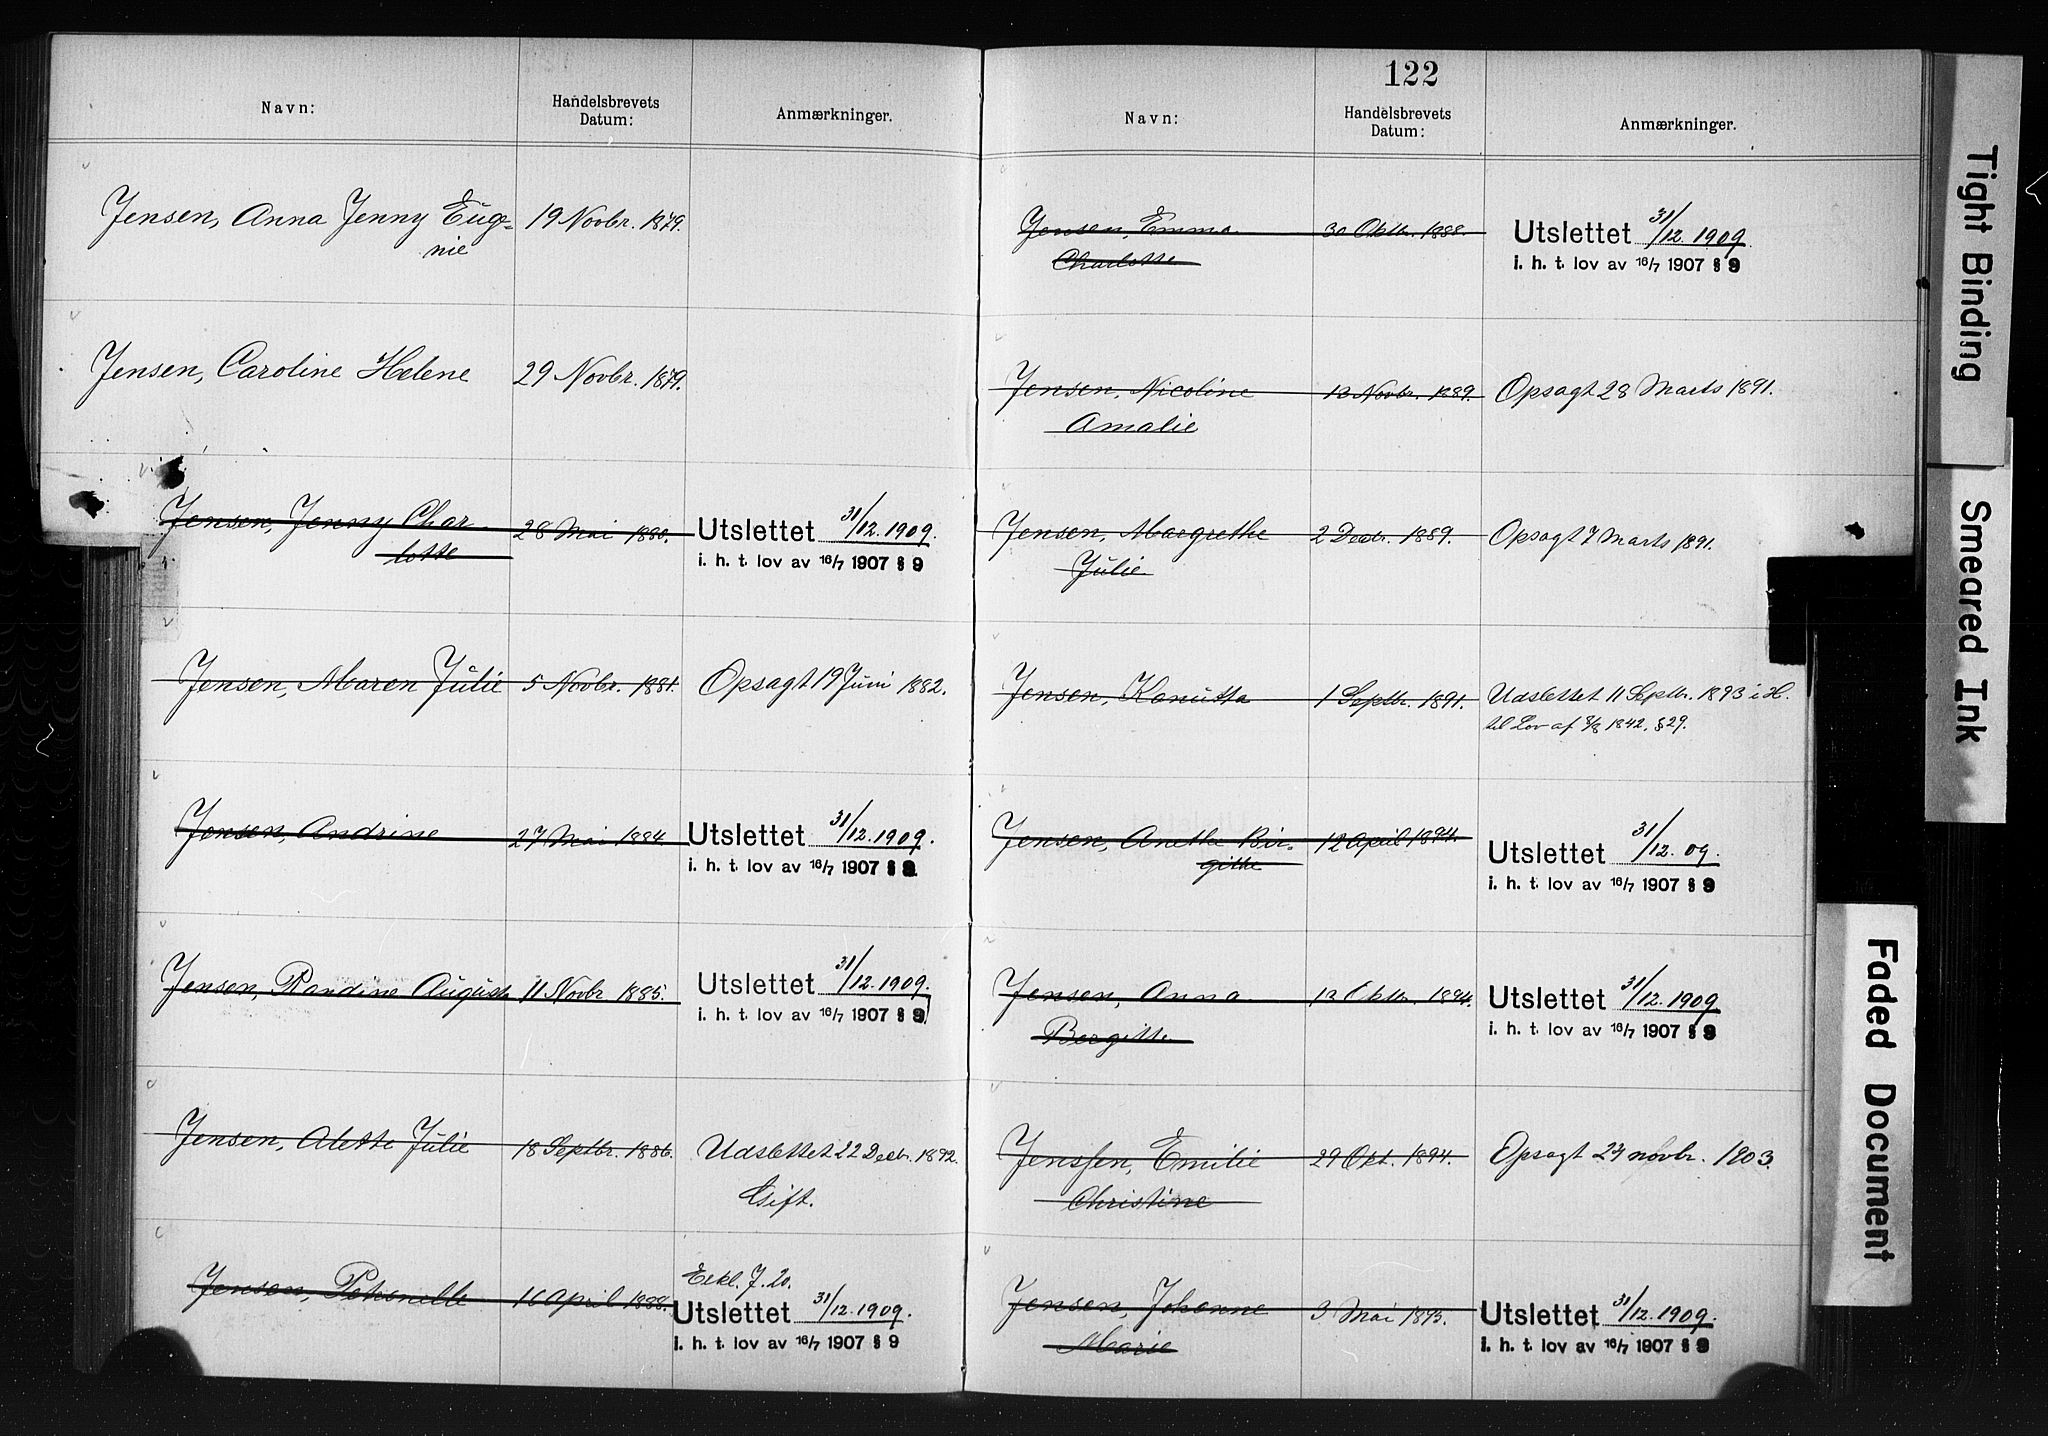 Navn:
Handelsbrevets
Datum:
Anmærkninger.
Jensen, Anna Jenny Euge=
nie
19 Novbr. 1879.
Jensen, Caroline Helene
29 Novbr. 1879.
Jensen, Jenny Char
lotte
28 Mai 1880.
Utslettet 31/12. 1909.
i. h. t. lov av 16/7 1907 § 9
Jensen, Maren Julie
5 Novbr. 1881.
Opsagt 19 Juni 1882.
Jensen, Andrine
27 Mai 1884.
Utslettet 31/12. 1909.
i. h. t. lov av 16/7 1907 § 9
Jensen, Randine August
11 Novbr 1885.
Utslettet 31/12. 1909.
i. h. t. lov av 16/7 1907 § 9
Jensen, Alette Julie
18 Septbr. 1886.
Udslettet 22 Decbr. 1892.
Gift.
Jensen, Petronelle
16 April 1888.
Eekl. J. 20.
Utslettet 31/12. 1909.
i. h. t. lov av 16/7 1907 § 9
122
Navn:
Handelsbrevets
Datum:
Anmærkninger.
Jensen, Emma
Charlotte
30 Oktbr. 1888.
Utslettet 31/12. 1909
i. h. t. lov av 16/7 1907 § 9
Jensen, Nicoline
Amalie
13 Novbr. 1889.
Opsagt 28 Marts 1891.
Jensen, Margrethe
Julie
2 Decbr. 1889.
Opsagt 7 Marts 1891.
Jensen, Kanutta
1 Septbr. 1891.
Udslettet 11 Septbr. 1893 i H.
til Lov af 8/8 1842, § 29.
Jensen, Anethe Bir=
githe
12 April 1894.
Utslettet 31/12. 09.
i. h. t. lov av 16/7 1907 § 9
Jensen, Anna
Bergitte
13 Oktbr. 1894.
Utslettet 31/12. 1909
i. h. t. lov av 16/7 1907 § 9
Jenssen, Emilie
Christine
29 Okt. 1894.
Opsagt 23 novbr. 1903.
Jensen, Johanne
Marie
3 Mai 1895.
Utslettet 31/12. 1909.
i. h. t. lov av 16/7 1907 § 9
Tight Binding
Smeared Ink
Faded Document